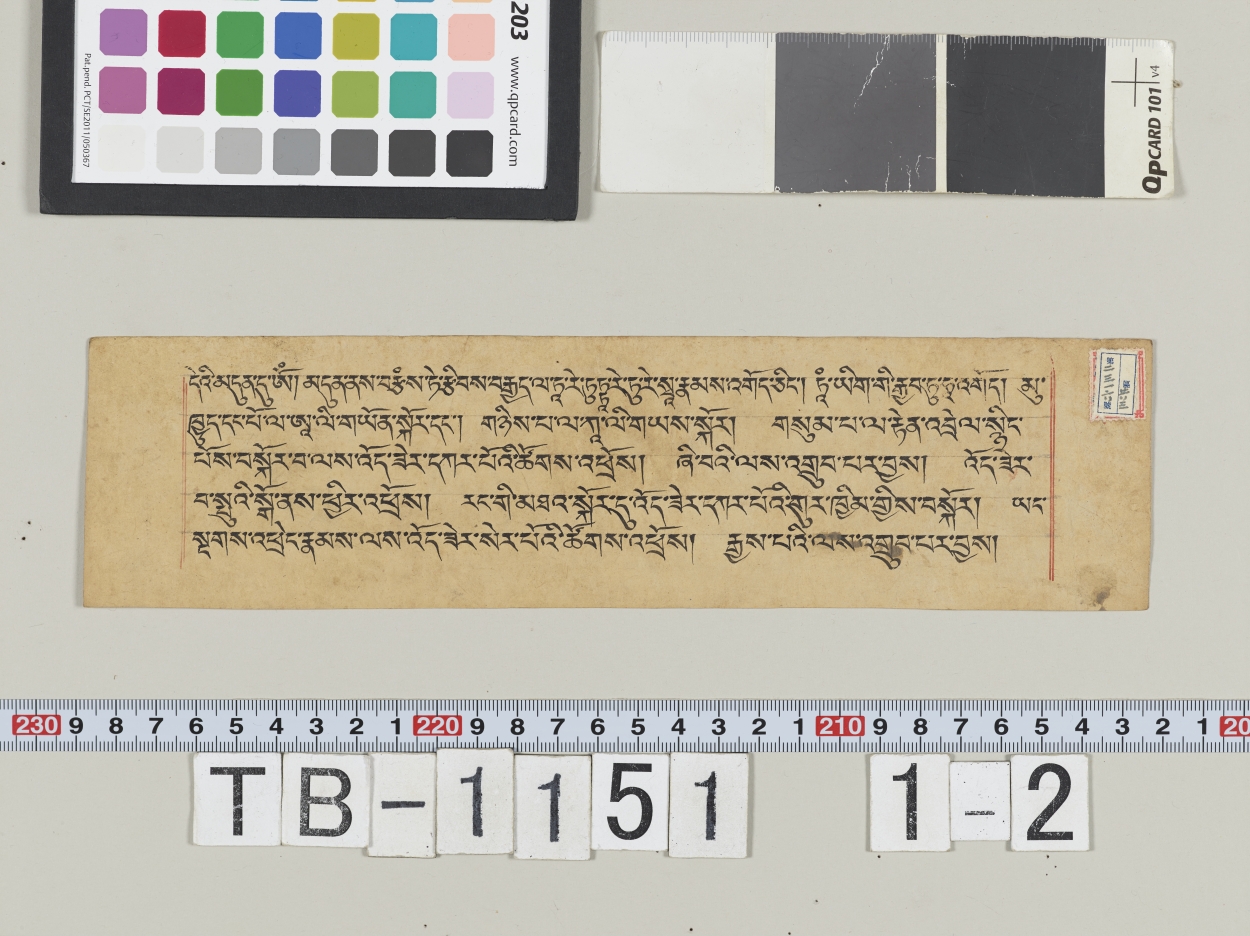 203
www.qpcard.com
Pat.pend. PCT/SE2011/050367
QPCARD 101 v4
དེའི་མདུན་དུ་ཨོཾ། མདུན་ནས་བརྩམས་ཏེ་རྩིབས་བརྒྱད་ལ་ཏཱ་རེ་ཏུཏྟཱ་རེ་ཏུ་རེ་སྭཱ་རྣམས་འགོད་ཅིང༌། ཏཱཾ་ཡིག་གི་རྒྱབ་ཏུ་ཧཱ་འགོད། མུ་
ཁྱུད་དང་པོ་ལ་ཨཱ་ལི་གཡོན་སྐོར་དང༌། གཉིས་པ་ལ་ཀཱ་ལི་གཡས་སྐོར། གསུམ་པ་ལ་རྟེན་འབྲེལ་སྙིང་
པོས་བསྐོར་བ་ལས་འོད་ཟེར་དཀར་པོའི་ཚོགས་འཕྲོས། ཞི་བའི་ལས་འགྲུབ་པར་བྱས། འོད་ཟེར་
བ་སྤུའི་སྒོ་ནས་ཕྱིར་འཕྲོས། རང་གི་མཐའ་སྐོར་དུ་འོད་ཟེར་དཀར་པོའི་གུར་ཁྱིམ་གྱིས་བསྐོར། ཡང་
སྔགས་འཕྲེང་རྣམས་ལས་འོད་ཟེར་སེར་པོའི་ཚོགས་འཕྲོས། རྒྱས་པའི་ལས་འགྲུབ་པར་བྱས།
230 9 8 7 6 5 4 3 2 1 220 9 8 7 6 5 4 3 2 1 210 9 8 7 6 5 4 3 2 1 20
TB-1151 1-2